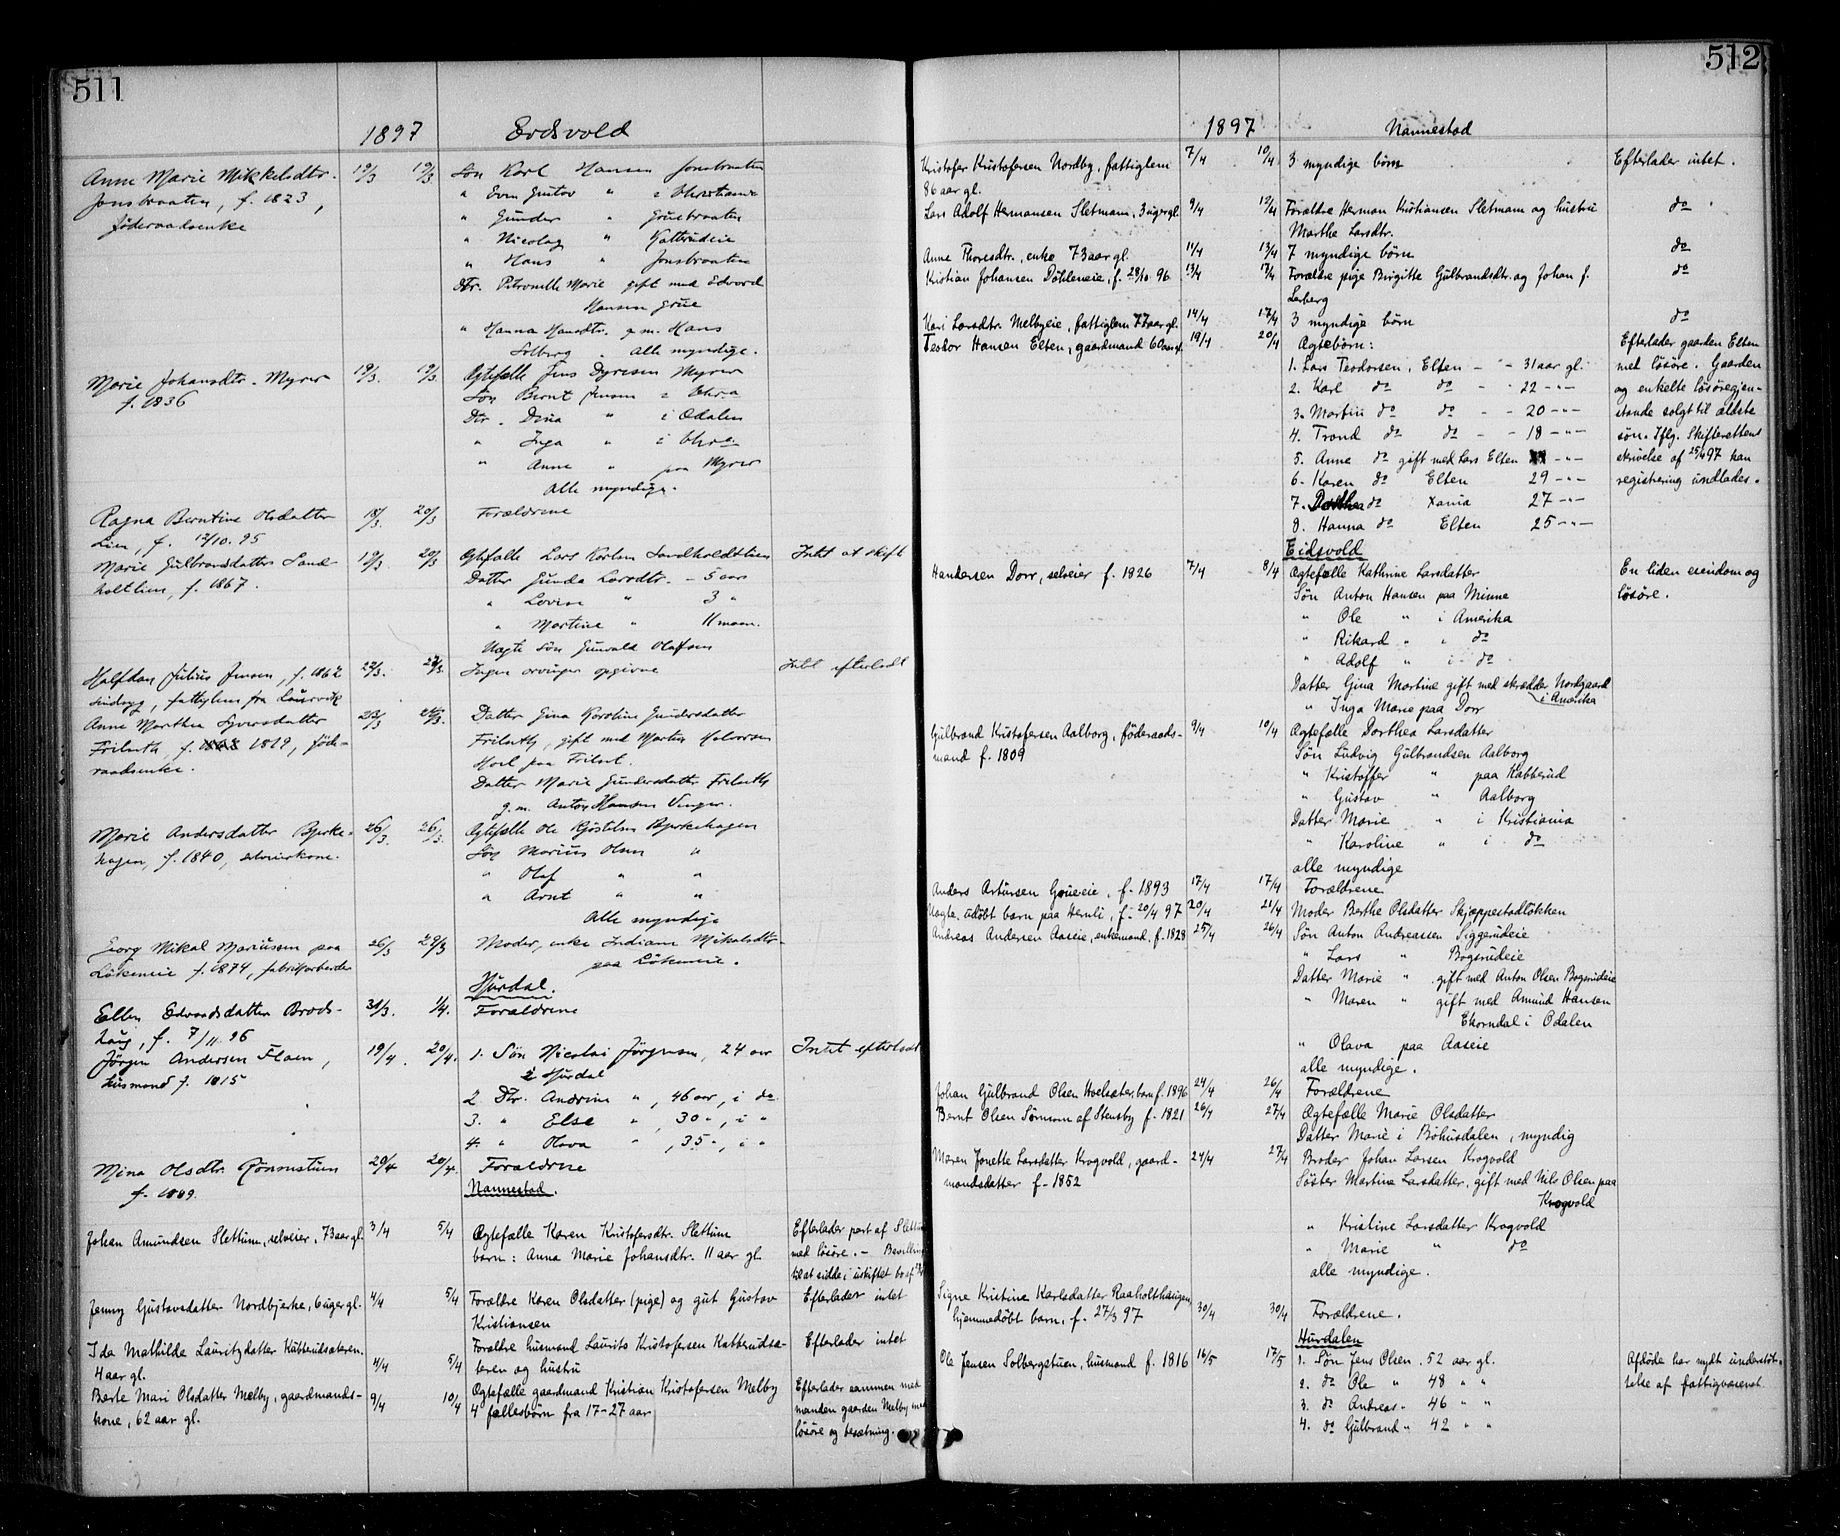 511
1897 Eidsvold
Anne Marie Mikkelsdtr. 19/3 19/3 Søn Karl Hansen Jonsbraaten
Jonsbraaten, f. 1823, " Even Gustav " i Christiania
føderaadsenke " Gunder " Gruebraaten
" Nicolay " Katterudeie
" Hans " Jonsbraaten
Dtr. Petronelle Marie gift med Edvard
Hansen Grue
" Hanna Hansdtr. g.m. Hans
Solberg. Alle myndige.
Marie Johansdtr. Myrer 19/3. 19/3 Ægtefælle Jens Dyresen Myrer
f. 1836 Søn Bernt Jensen i Chr.a
Dtr. Dina " i Odalen
" Inga " i Chr.a
" Anne " paa Myrer
Alle myndige.
Ragna Berntine Olsdatter 18/3. 20/3 Forældrene
Lien, f. 12/10.95
Marie Gulbrandsdatter Sand- 19/3. 20/3 Ægtefælle Lars Karlsen Sandholtlien Intet at skift
holtlien, f. 1867. Datter Gunda Larsdtr. - 5 aar
" Lovise " 3 "
" Martine " 11 maan.
Uægte Søn Gunvald Olafsen
Halfdan Julius Jensen, f. 1862 22/3. 23/3. Ingen arvinger opgivne Intet efterladt
sindsyg, fattiglem fra Laurvik
Anne Marthea Syversdatter 23/3 24/3. Datter Gina Karoline Gundersdatter
Frilseth, f. 1819, føde- Frilseth, gift med Martin Halvorsen
raadsenke. Hoel paa Frilset.
Datter Marie Gundersdatter Frilseth
g.m. Anton Hansen Venger.
Marie Andersdatter Bjerke- 26/3. 26/3. Ægtefælle Ole Kjøstelsen Bjerkehagen
hagen, f. 1840, selveierkone. Søn Marius Olsen "
" Olaf " "
" Arnt " "
Alle myndige
Georg Mikal Mariussen paa 26/3 29/3 Moder, enke Indiane Mikalsdtr.
Løkeneie f. 1874, fabrikarbeider paa Løkeneie.
Hurdal.
Ellen Edvardsdatter Brods- 31/3. 1/4. Forældrene
haug, f. 7/11.96
Jørgen Andersen Flaen, 19/4. 20/4. 1. Søn Nicolai Jørgensen, 24 aar Intet efterladt
husmand f. 1815 i Hurdal
2 Dtr. Andrine ", 46 aar, i do
3. " Else ", 30 ", i "
4. " Olava ", 35 ", i "
Mina Olsdtr. Rønnstuen 20/4. 20/4. Forældrene
f. 1889.
Nannestad.
Johan Amundsen Slettum, selveier, 73 aar gl. 3/4 5/4 Ægtefælle Karen Kristofersdtr. Slettum Efterlader part af Slettum
barn: Anna Marie Johansdtr. 11 aar gl. med løsøre. - Bevilling
til at sidde i uskiftet bo af
Jenny Gustavsdatter Nordbjerke, 6 uger gl. 4/4 5/4 Forældre Karen Olsdatter (pige) og gut Gustav Efterlader intet
Kristiansen
Ida Mathilde Lauritzdatter Kátterudsæteren. Forældre husmand Laurits Kristofersen Katterudsæ- Efterlader intet
4 aar gl. 4/4 5/4 teren og hustru
Berte Mari Olsdatter Melby, gaardmands- 9/4 10/4 Ægtefælle gaardmand Kristian Kristofersen Melby Efterlader sammen med
kone, 62 aar gl. 4 fællesbörn fra 17-27 aar manden gaarden Melby med
løsøre og besætning.
512
1897 Nannestad
Kristofer Kristofersen Nordby, fattiglem 7/4 10/4 3 myndige börn Efterlader intet.
86 aar gl.
Lars Adolf Hermansen Sletmam, 3 uger gl. 9/4 12/4 Forældre Herman Kristiansen Sletmam og hustru do
Marthe Larsdtr.
Anne Thoresdtr., enke 73 aar gl. 11/4 13/4 7 myndige börn do
Kristian Johansen Döhleneie, f. 28/10 96. 13/4 17/4 Forældre pige Birgitte Gulbrandsdtr. og Johan f. do
Lerberg
Kari Larsdtr. Melbyeie, fattiglem 77 aar gl. 14/4 17/4 3 myndige börn do
Teodor Hansen Elten, gaardmand 60 aar gl. 19/4 20/4 Ægtebörn: Efterlader gaarden Elten
1. Lars Teodorsen, Elten - - 31 aar gl. med løsøre. Gaarden
2. Karl do do - 22 - " - og enkelte løsøregjen-
3. Martin do do - - 20 - " - stande solgt til ældste
4. Trond do do - - 18 - " - søn. Iflg. Skifterettens
5. Anne do gift med Lars Elten - " - skrivelse af 25/4 97 kan
6. Karen do Elten 29 - " - registrering undlades.
7. Dorthea do Xania 27 - " -
8. Hanna do Elten 25 - " -
Eidsvold
Hans Larsen Dorr, selveier f. 1826 7/4 8/4 Ægtefælle Kathrine Larsdatter En liden eiendom og
Søn Anton Hansen paa Minne løsøre.
" Ole " i Amerika
" Rikard " i do
" Adolf " i do
Datter Gina Martine gift med skrædder Nordgaard
i Amerika
" Inga Marie paa Dorr
Gulbrand Kristofersen Aalborg, føderaads- 9/4 10/4 Ægtefælle Dorthea Larsdatter
mand f. 1809 Søn Ludvig Gulbrandsen Aalborg
" Kristoffer " paa Habberud
" Gustav " Aalborg
Datter Marie " i Kristiania
" Karoline " i do
alle myndige
Anders Artursen Grueeie, f. 1893 17/4 17/4 Forældrene
Uægte. udöbt barn paa Hernli, f. 20/4 97 20/4 21/4 Moder Berthe Olsdatter Skjæppestadløkken
Andreas Andersen Aaseie, enkemand, f. 1828 25/4 26/4 Søn Anton Andreassen Siggerudeie
" Lars " Bogsrudeie
Datter Marie " gift med Anton Olsen Bogsrudeie
" Maren " gift med Amund Hansen
Ekorndal i Odalen
" Olava paa Aaseie
alle myndige.
Johan Gulbrand Olsen Hoelsæter, barn f. 1896 24/4 26/4 Forældrene
Bernt Olsen Sørnom af Stensby f. 1821 26/4 27/4 Ægtefælle Marie Olsdatter
Datter Marie i Böhusdalen, myndig
Maren Jonette Larsdatter Krogvold, gaard- 24/4 27/4 Broder Johan Larsen Krogvold
mandsdatter f. 1852 Søster Martine Larsdatter, gift med Nils Olsen paa
Krogvold
" Kristine Larsdatter Krogvold
" Marie " do
alle myndige.
Signe Kristine Karlsdatter Raaholthaugen,
hjemmedöbt barn, f. 27/3 97 30/4 30/4 Forældrene.
Hurdalen
Ole Jensen Solbergstuen, husmand f. 1816 16/5 17/5 1. Søn Jens Olsen. 52 aar gl. Afdöde har nydt understöt-
2. do Ole " 48 " " telse af fattigvæsenet.
3. do Andreas " 46 " "
4. do Gulbrand " 42 " "